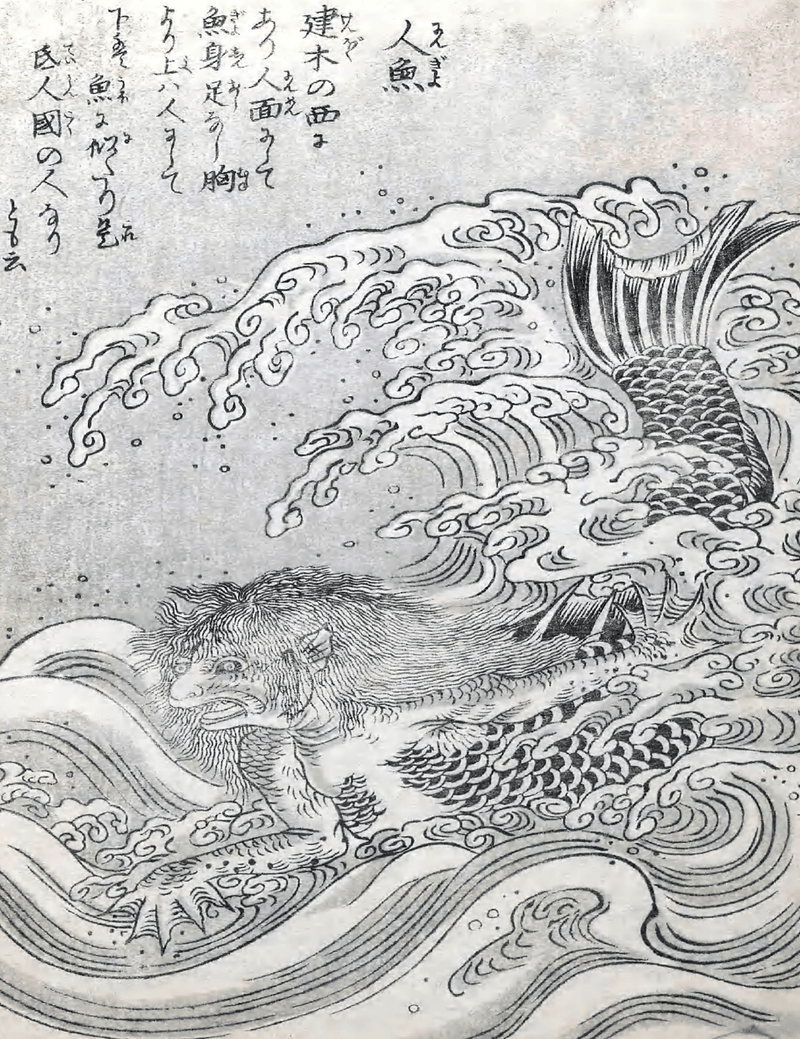 人魚
にんぎよ
建木の西に
あり人面にして
魚身足なし胸
より上ハ人にして
下は魚に似たり是
氐人國の人なり
とも云